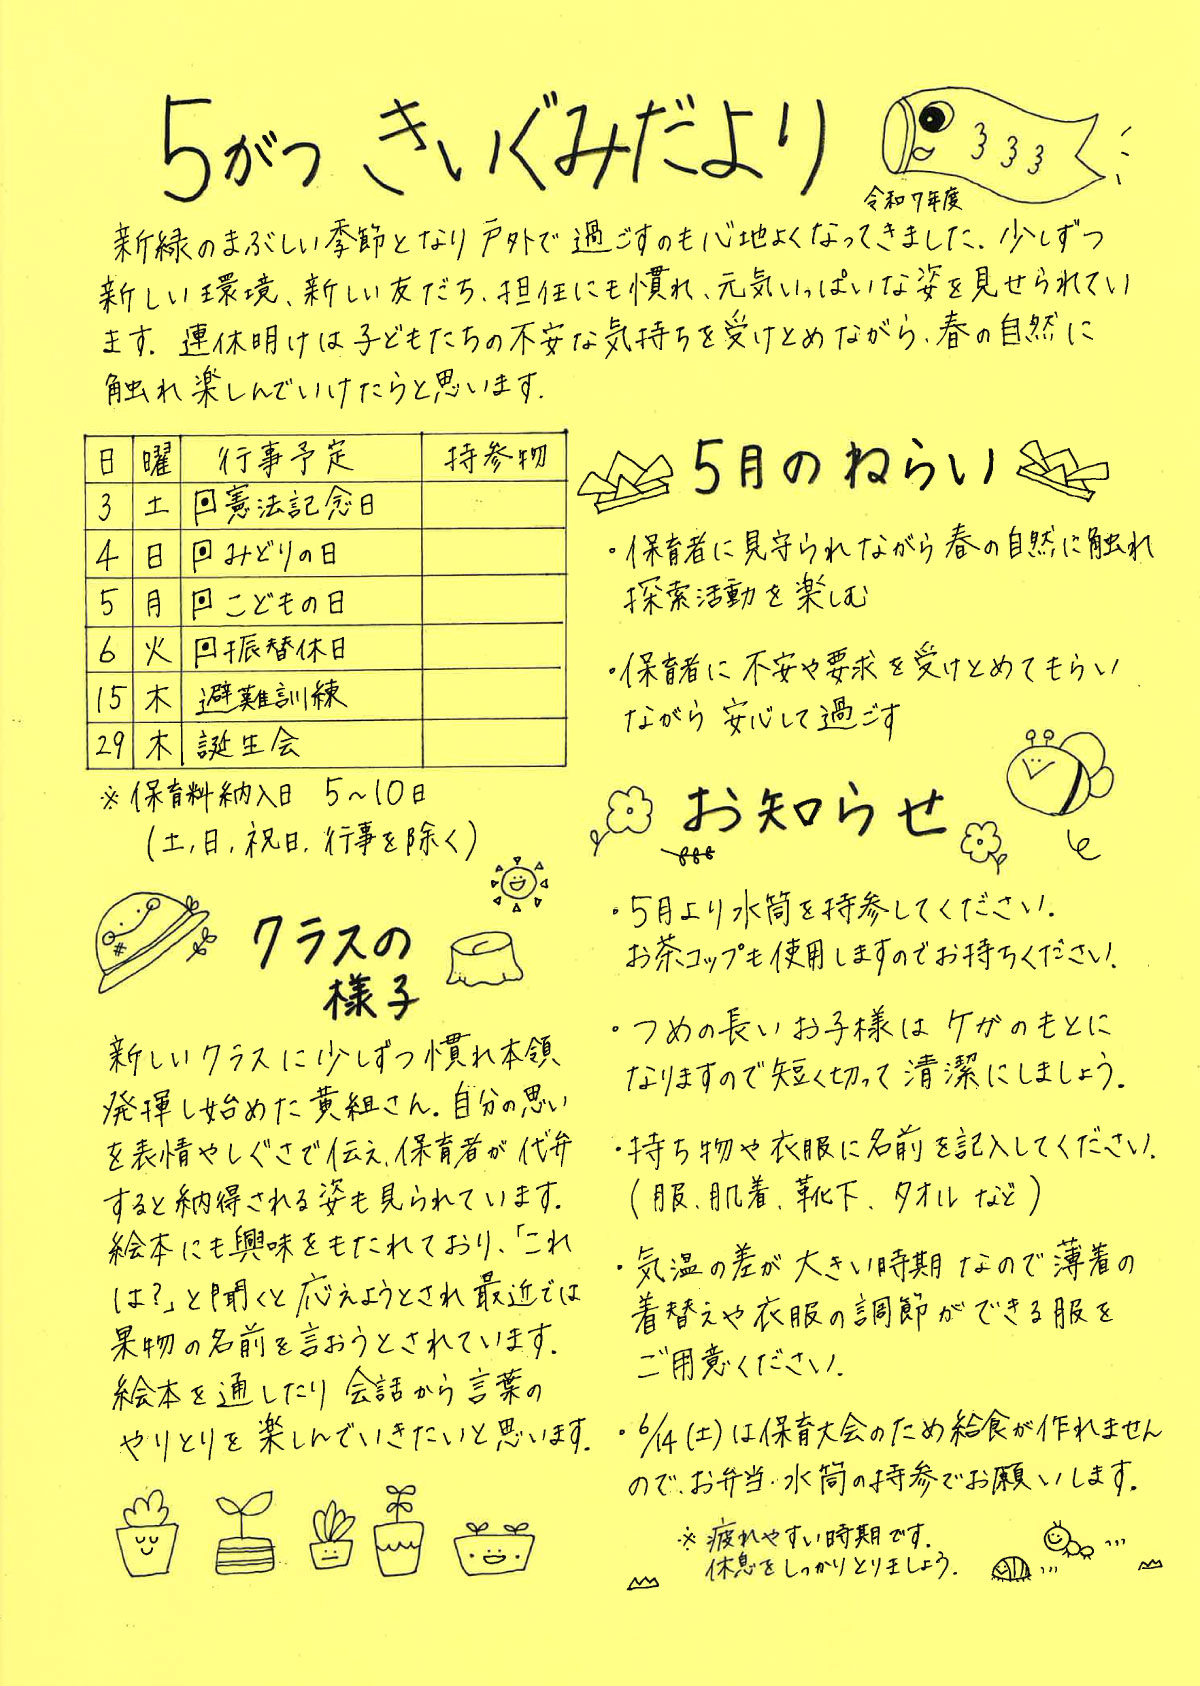 5がつ きいぐみだより
令和7年度
新緑のまぶしい季節となり戸外で過ごすのも心地よくなってきました。少しずつ
新しい環境、新しい友だち、担任にも慣れ、元気いっぱいな姿を見せられてい
ます。連休明けは子どもたちの不安な気持ちを受けとめながら、春の自然に
触れ楽しんでいけたらと思います。
日 曜 行事予定 持参物
3 土 憲法記念日
4 日 みどりの日
5 月 こどもの日
6 火 振替休日
15 木 避難訓練
29 木 誕生会
※保育料納入日 5〜10日
(土,日,祝日,行事を除く)
クラスの
様子
新しいクラスに少しずつ慣れ本領
発揮し始めた黄組さん。自分の思い
を表情やしぐさで伝え、保育者が代弁
すると納得される姿も見られています。
絵本にも興味をもたれており、「これ
は?」と聞くと応えようとされ最近では
果物の名前を言おうとされています。
絵本を通したり会話から言葉の
やりとりを楽しんでいきたいと思います。
5月のねらい
・保育者に見守られながら春の自然に触れ
探索活動を楽しむ
・保育者に不安や要求を受けとめてもらい
ながら安心して過ごす
お知らせ
・5月より水筒を持参してください。
お茶コップも使用しますのでお持ちください。
・つめの長いお子様はケガのもとに
なりますので短く切って清潔にしましょう。
・持ち物や衣服に名前を記入してください。
(服、肌着、靴下、タオルなど)
・気温の差が大きい時期なので薄着の
着替えや衣服の調節ができる服を
ご用意ください。
・6/14(土)は保育大会のため給食が作れません
ので、お弁当・水筒の持参でお願いします。
※疲れやすい時期です。
休息をしっかりとりましょう。